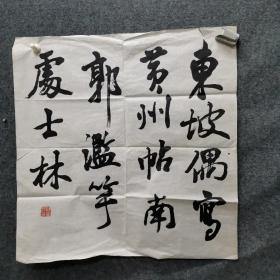 東坡偶寫
黄州帖南
郭濫竽
處士林